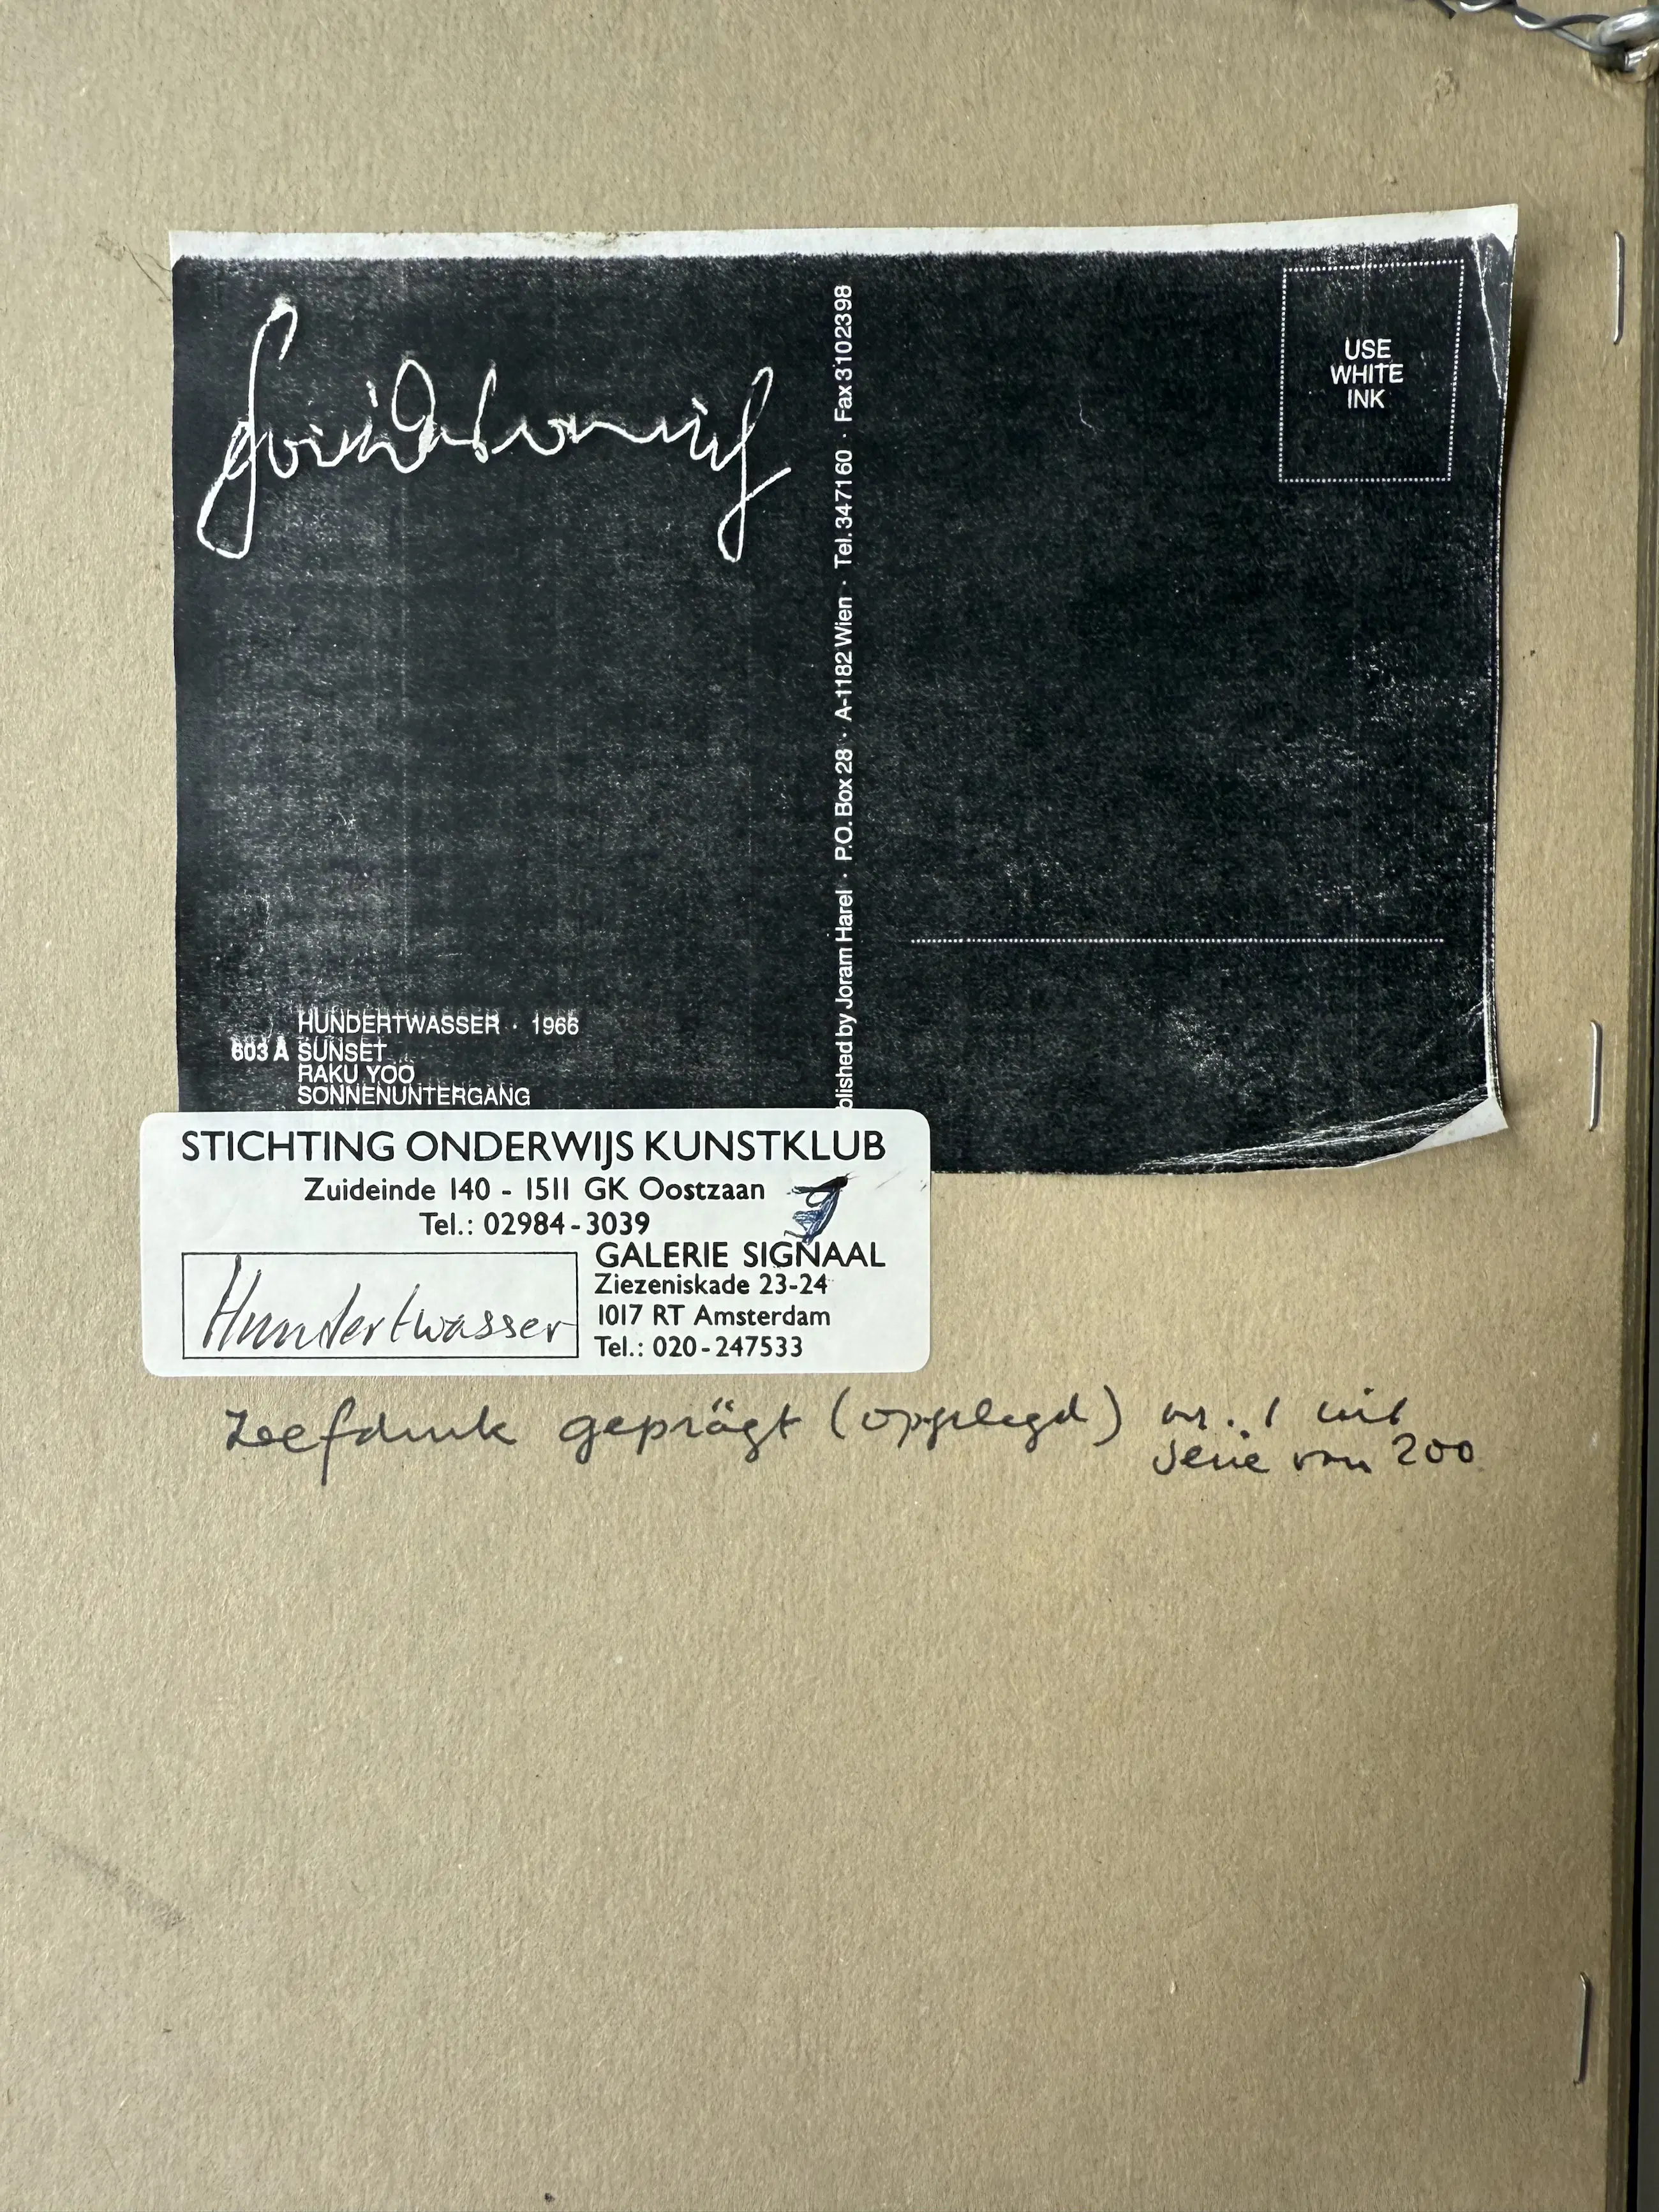 USE
WHITE
INK
blished by Joram Harel · P.O. Box 28 · A-1182 Wien · Tel. 34 71 60 · Fax 3102398
HUNDERTWASSER · 1966
603 A SUNSET
RAKU YOO
SONNENUNTERGANG
STICHTING ONDERWIJS KUNSTKLUB
Zuideinde 140 - 1511 GK Oostzaan
Tel.: 02984-3039
GALERIE SIGNAAL
Ziezeniskade 23-24
1017 RT Amsterdam
Tel.: 020-247533
Hundertwasser
Zeefdruk geprägt (opgelegd) nr. 1 uit
serie van 200